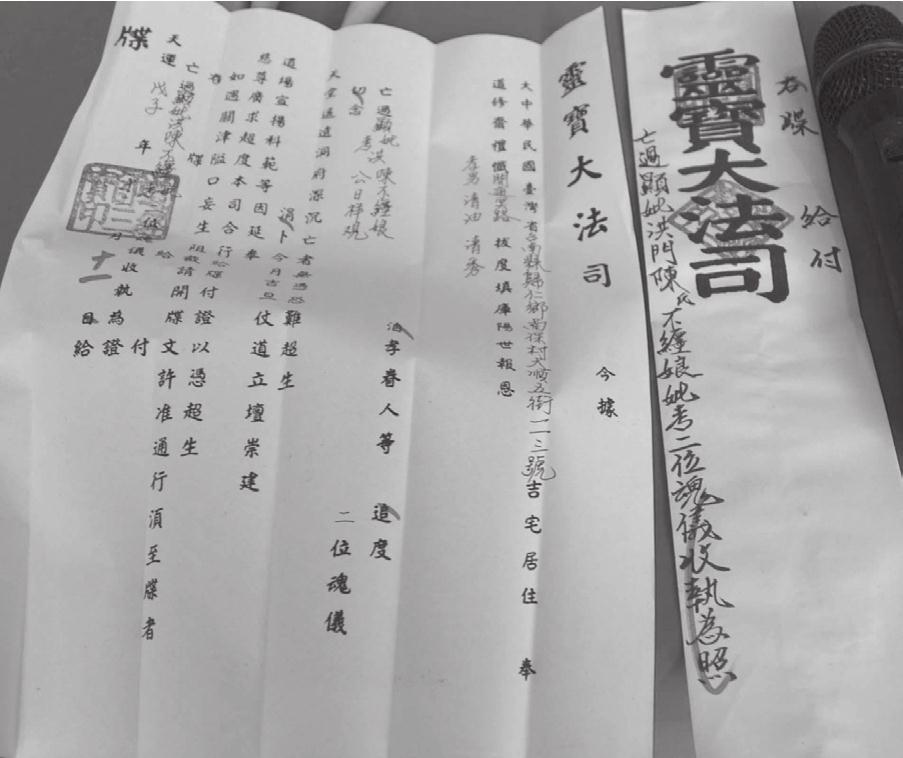 給付
靈寶大法司
亡過顯妣洪門陳氏不纏娘妣考二位魂儀收執為照
靈寶大法司 今據
大中華民國臺灣省台南縣歸仁鄉南保村大順五街一二三號吉宅居住 奉
道修齋禮懺開通冥路拔度填庫陽世報恩
孝男清油 清秀
洎孝眷人等 追度
亡過顯妣洪陳不纏娘
二位魂儀
天堂遙遠洞府深沉亡者無憑恐難超生
涓卜今月吉旦仗道立壇崇建
道場宣揚科範等因延奉
慈尊廣求超度本司合行給牒付證以憑超生
如遇關津隘口妄生阻攔請開牒文許准通行湏至牒者
右牒給付
亡過顯妣洪陳不纏娘 儀收執為證
天運戊子年 月十一日給
牒